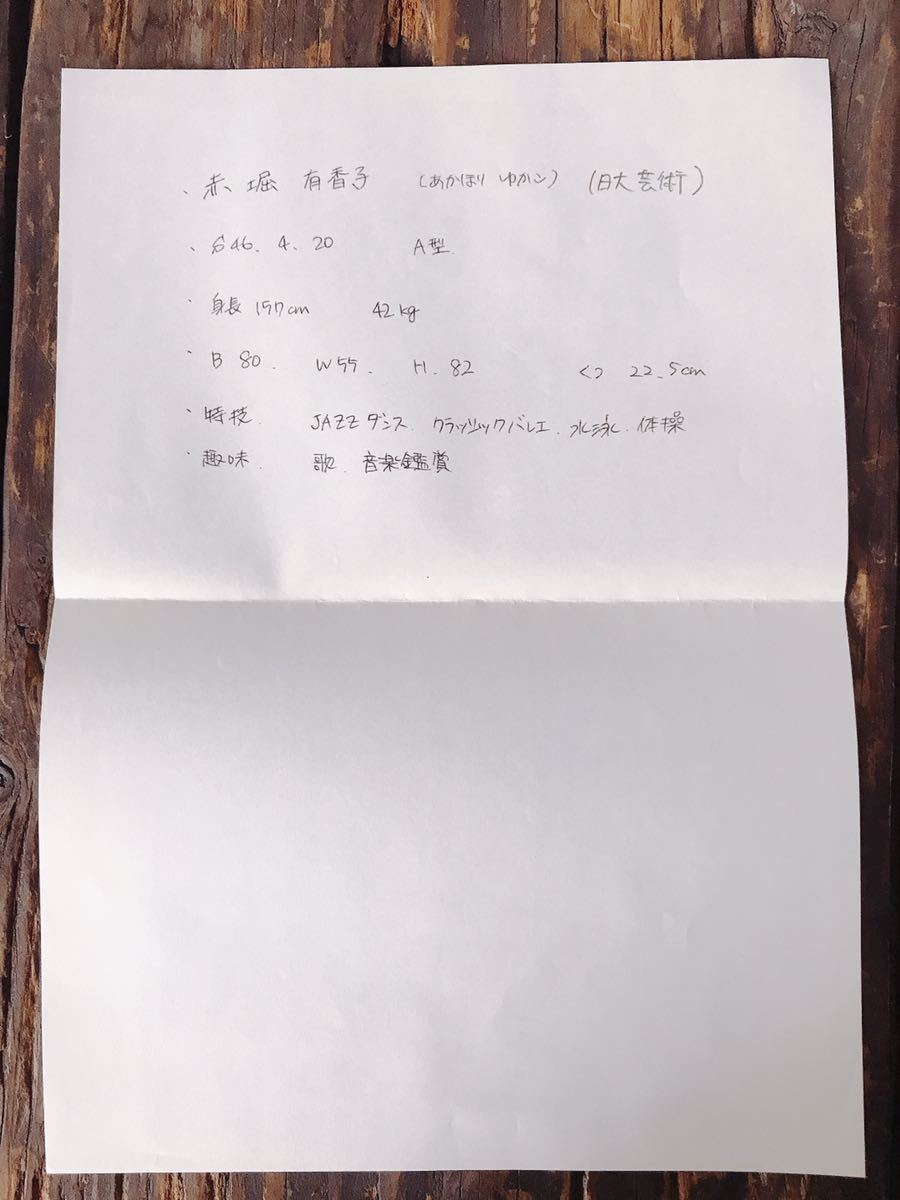 、赤堀 有香子 (あかほり ゆかこ) (日大芸術)
、S46.4.20 A型.
・身長 157cm 42kg
・B 80. W55. H.82 くつ 22.5cm
・特技. JAZZダンス.クラッシックバレエ.水泳.体操
・趣味. 歌.音楽鑑賞